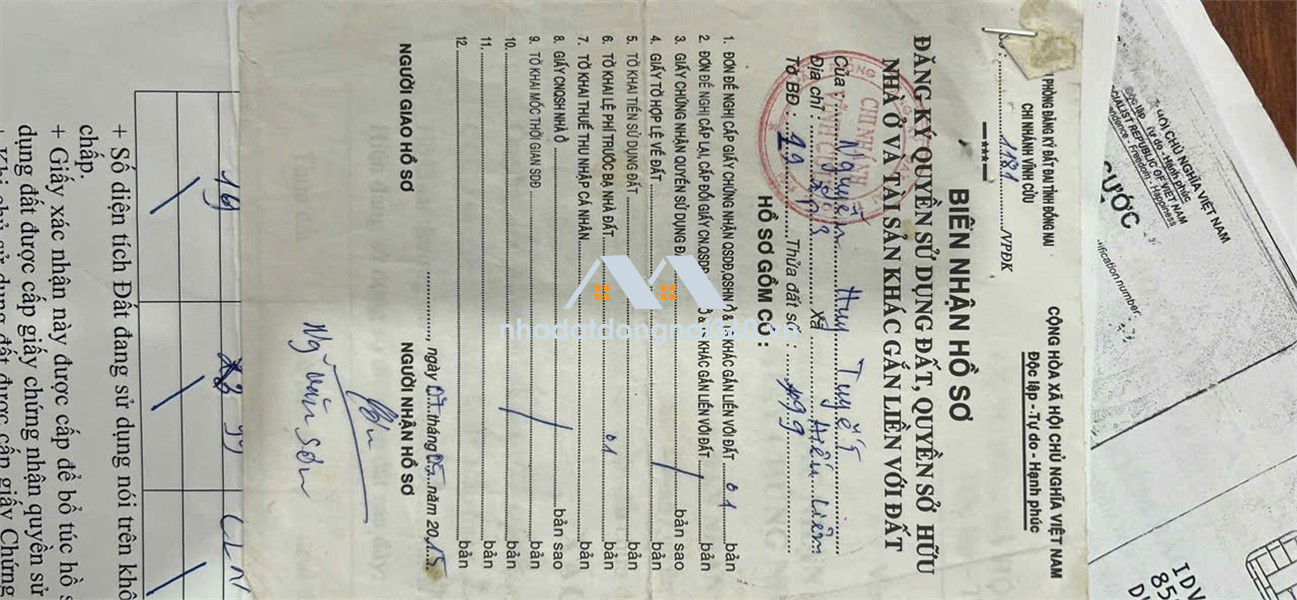 VĂN PHÒNG ĐĂNG KÝ ĐẤT ĐAI TỈNH ĐỒNG NAI
CHI NHÁNH VĨNH CỬU
CỘNG HÒA XÃ HỘI CHỦ NGHĨA VIỆT NAM
Độc lập - Tự do - Hạnh phúc
Số: 1181 /VPĐK
BIÊN NHẬN HỒ SƠ
ĐĂNG KÝ QUYỀN SỬ DỤNG ĐẤT, QUYỀN SỞ HỮU
NHÀ Ở VÀ TÀI SẢN KHÁC GẮN LIỀN VỚI ĐẤT
Của: Nguyễn Huy Tuyết
Địa chỉ: xã Hiếu Liêm
Tờ BĐ: 19 Thửa đất số: 199
HỒ SƠ GỒM CÓ:
1. ĐƠN ĐỀ NGHỊ CẤP GIẤY CHỨNG NHẬN QSDĐ,QSHN Ở & TS KHÁC GẮN LIỀN VỚI ĐẤT 01 bản
2. ĐƠN ĐỀ NGHỊ CẤP LẠI, CẤP ĐỔI GIẤY CN.QSDĐ KHÁC GẮN LIỀN VỚI ĐẤT bản
3. GIẤY CHỨNG NHẬN QUYỀN SỬ DỤNG Đ bản sao
4. GIẤY TỜ HỢP LỆ VỀ ĐẤT bản
5. TỜ KHAI TIỀN SỬ DỤNG ĐẤT bản
6. TỜ KHAI LỆ PHÍ TRƯỚC BẠ NHÀ ĐẤT 01 bản
7. TỜ KHAI THUẾ THU NHẬP CÁ NHÂN bản
8. GIẤY CNQSH NHÀ Ở bản sao
9. TỜ KHAI MỐC THỜI GIAN SDĐ bản
10. bản
11. bản
12. bản
ngày 07 tháng 05 năm 2015
NGƯỜI GIAO HỒ SƠ
NGƯỜI NHẬN HỒ SƠ
Ng Văn Sơn
CHI NHÁNH
nhadatdongnai360.vn
HỘI CHỦ NGHĨA VIỆT NAM
Độc lập - Tự do - Hạnh phúc
SOCIALIST REPUBLIC OF VIET NAM
Independence - Freedom - Happiness
CƯỚC
IDV
199
CLN
+ Số diện tích Đất đang sử dụng nói trên khô
chấp.
+ Giấy xác nhận này được cấp để bổ túc hồ s
dụng đất được cấp giấy chứng nhận quyền sử
+ Khi chủ sử dụng đất được cấp giấy Chứng